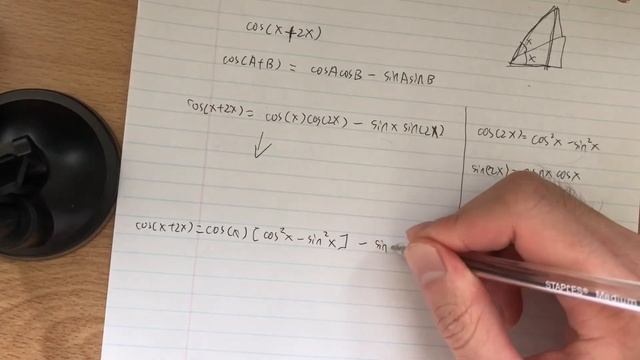 cos(x+2x)
cos(A+B) = cosAcosB - sinAsinB
cos(x+2x) = cos(x)cos(2x) - sinx sin(2x)
cos(2x) = cos²x - sin²x
sin(2x) cosx
cos(x+2x) = cos(x) [cos²x - sin²x] - sin
x
x
STAPLES® Medium